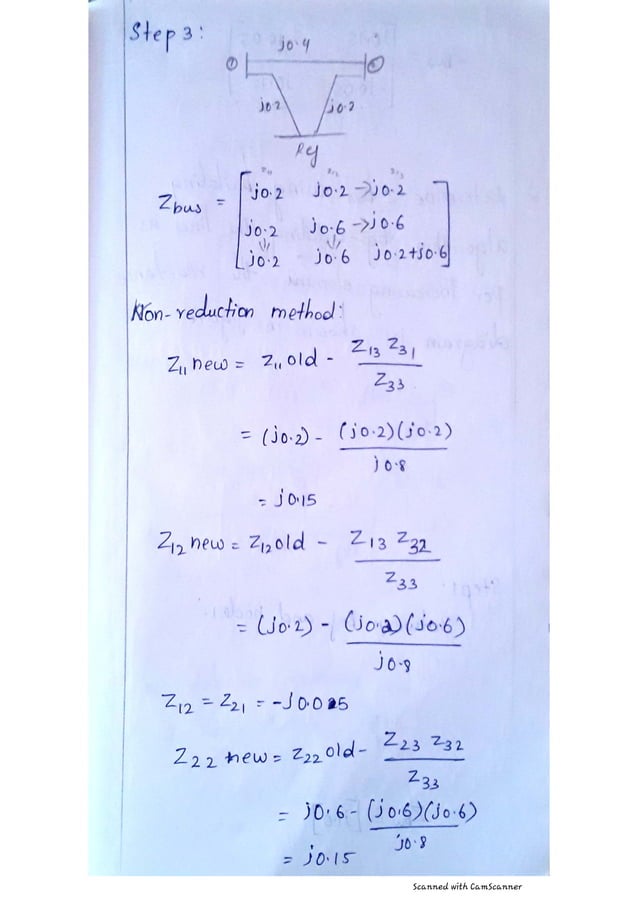 Step 3:
j0.4
① ②
j0.2 j0.2
Ref
Zbus = [ j0.2 j0.2 → j0.2
j0.2 j0.6 → j0.6
j0.2 j0.6 j0.2+j0.6 ]
Non-reduction method:
Z11 new = Z11 old - Z13 Z31 / Z33
= (j0.2) - (j0.2)(j0.2) / j0.8
= j0.15
Z12 new = Z12 old - Z13 Z32 / Z33
= (j0.2) - (j0.2)(j0.6) / j0.8
Z12 = Z21 = -j0.025
Z22 new = Z22 old - Z23 Z32 / Z33
= j0.6 - (j0.6)(j0.6) / j0.8
= j0.15
Scanned with CamScanner